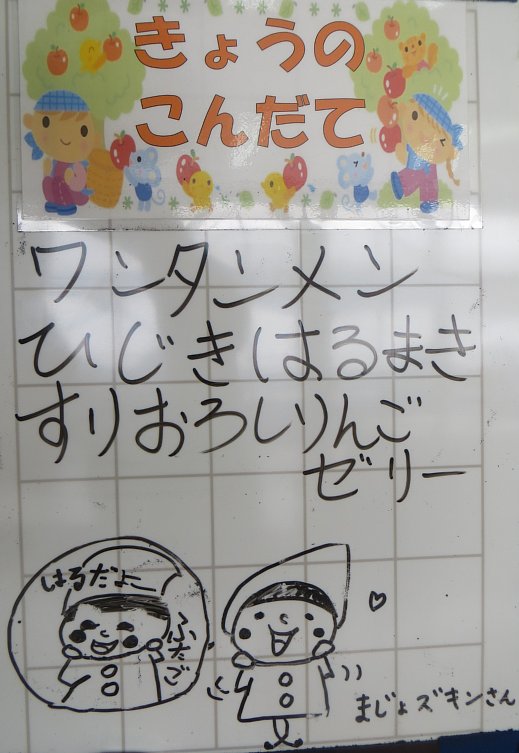 きょうの
こんだて
ワンタンメン
ひじきはるまき
すりおろしりんご
ゼリー
はるだよー
ふたご
まじょズキンさん